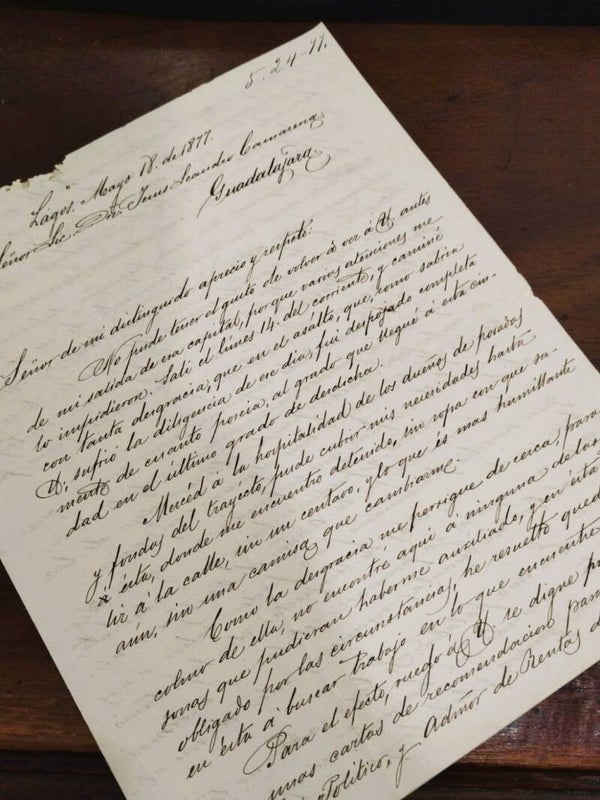 5-24-77.
Lagos. Mayo 18. de 1877.
Señor Lic. Dn. Jesus Leandro Camarena
Guadalajara
Señor de mi distinguido aprecio y respeto:
No pude tener el gusto de volver à ver à V. antes
de mi salida de esa capital, porque varias atenciones me
lo impidieron. Salí el lúnes 14. del corriente, y caminé
con tanta desgracia, que en el asalto, que, como sabrá
V; sufrió la diligencia de ese dia, fuí despojado completa
mente de cuanto poseia, al grado que llegué á esta ciu-
dad en el último grado de desdicha.
Mercéd à la hospitalidad de los dueños de posadas
y fondas del trayécto, pude cubrir mis necesidades hasta
ésta, donde me encuentro detenido, sin ropa con que sa-
lir á la calle, sin un centavo, y lo que és mas humillante
aún, sin una camisa que cambiarme.
Como la desgracia me persigue de cerca, para
colmo de ella, no encontré aquí à ninguna de las
sonas que pudieran haberme auxiliado, y en ésta
obligado por las circunstancias, he resuelto qued
en ésta á buscar trabajo en lo que encuentre
Para el efecto, ruego á V. se digne
unas cartas de recomendacion para
Politico, y Admõr de Rentas d